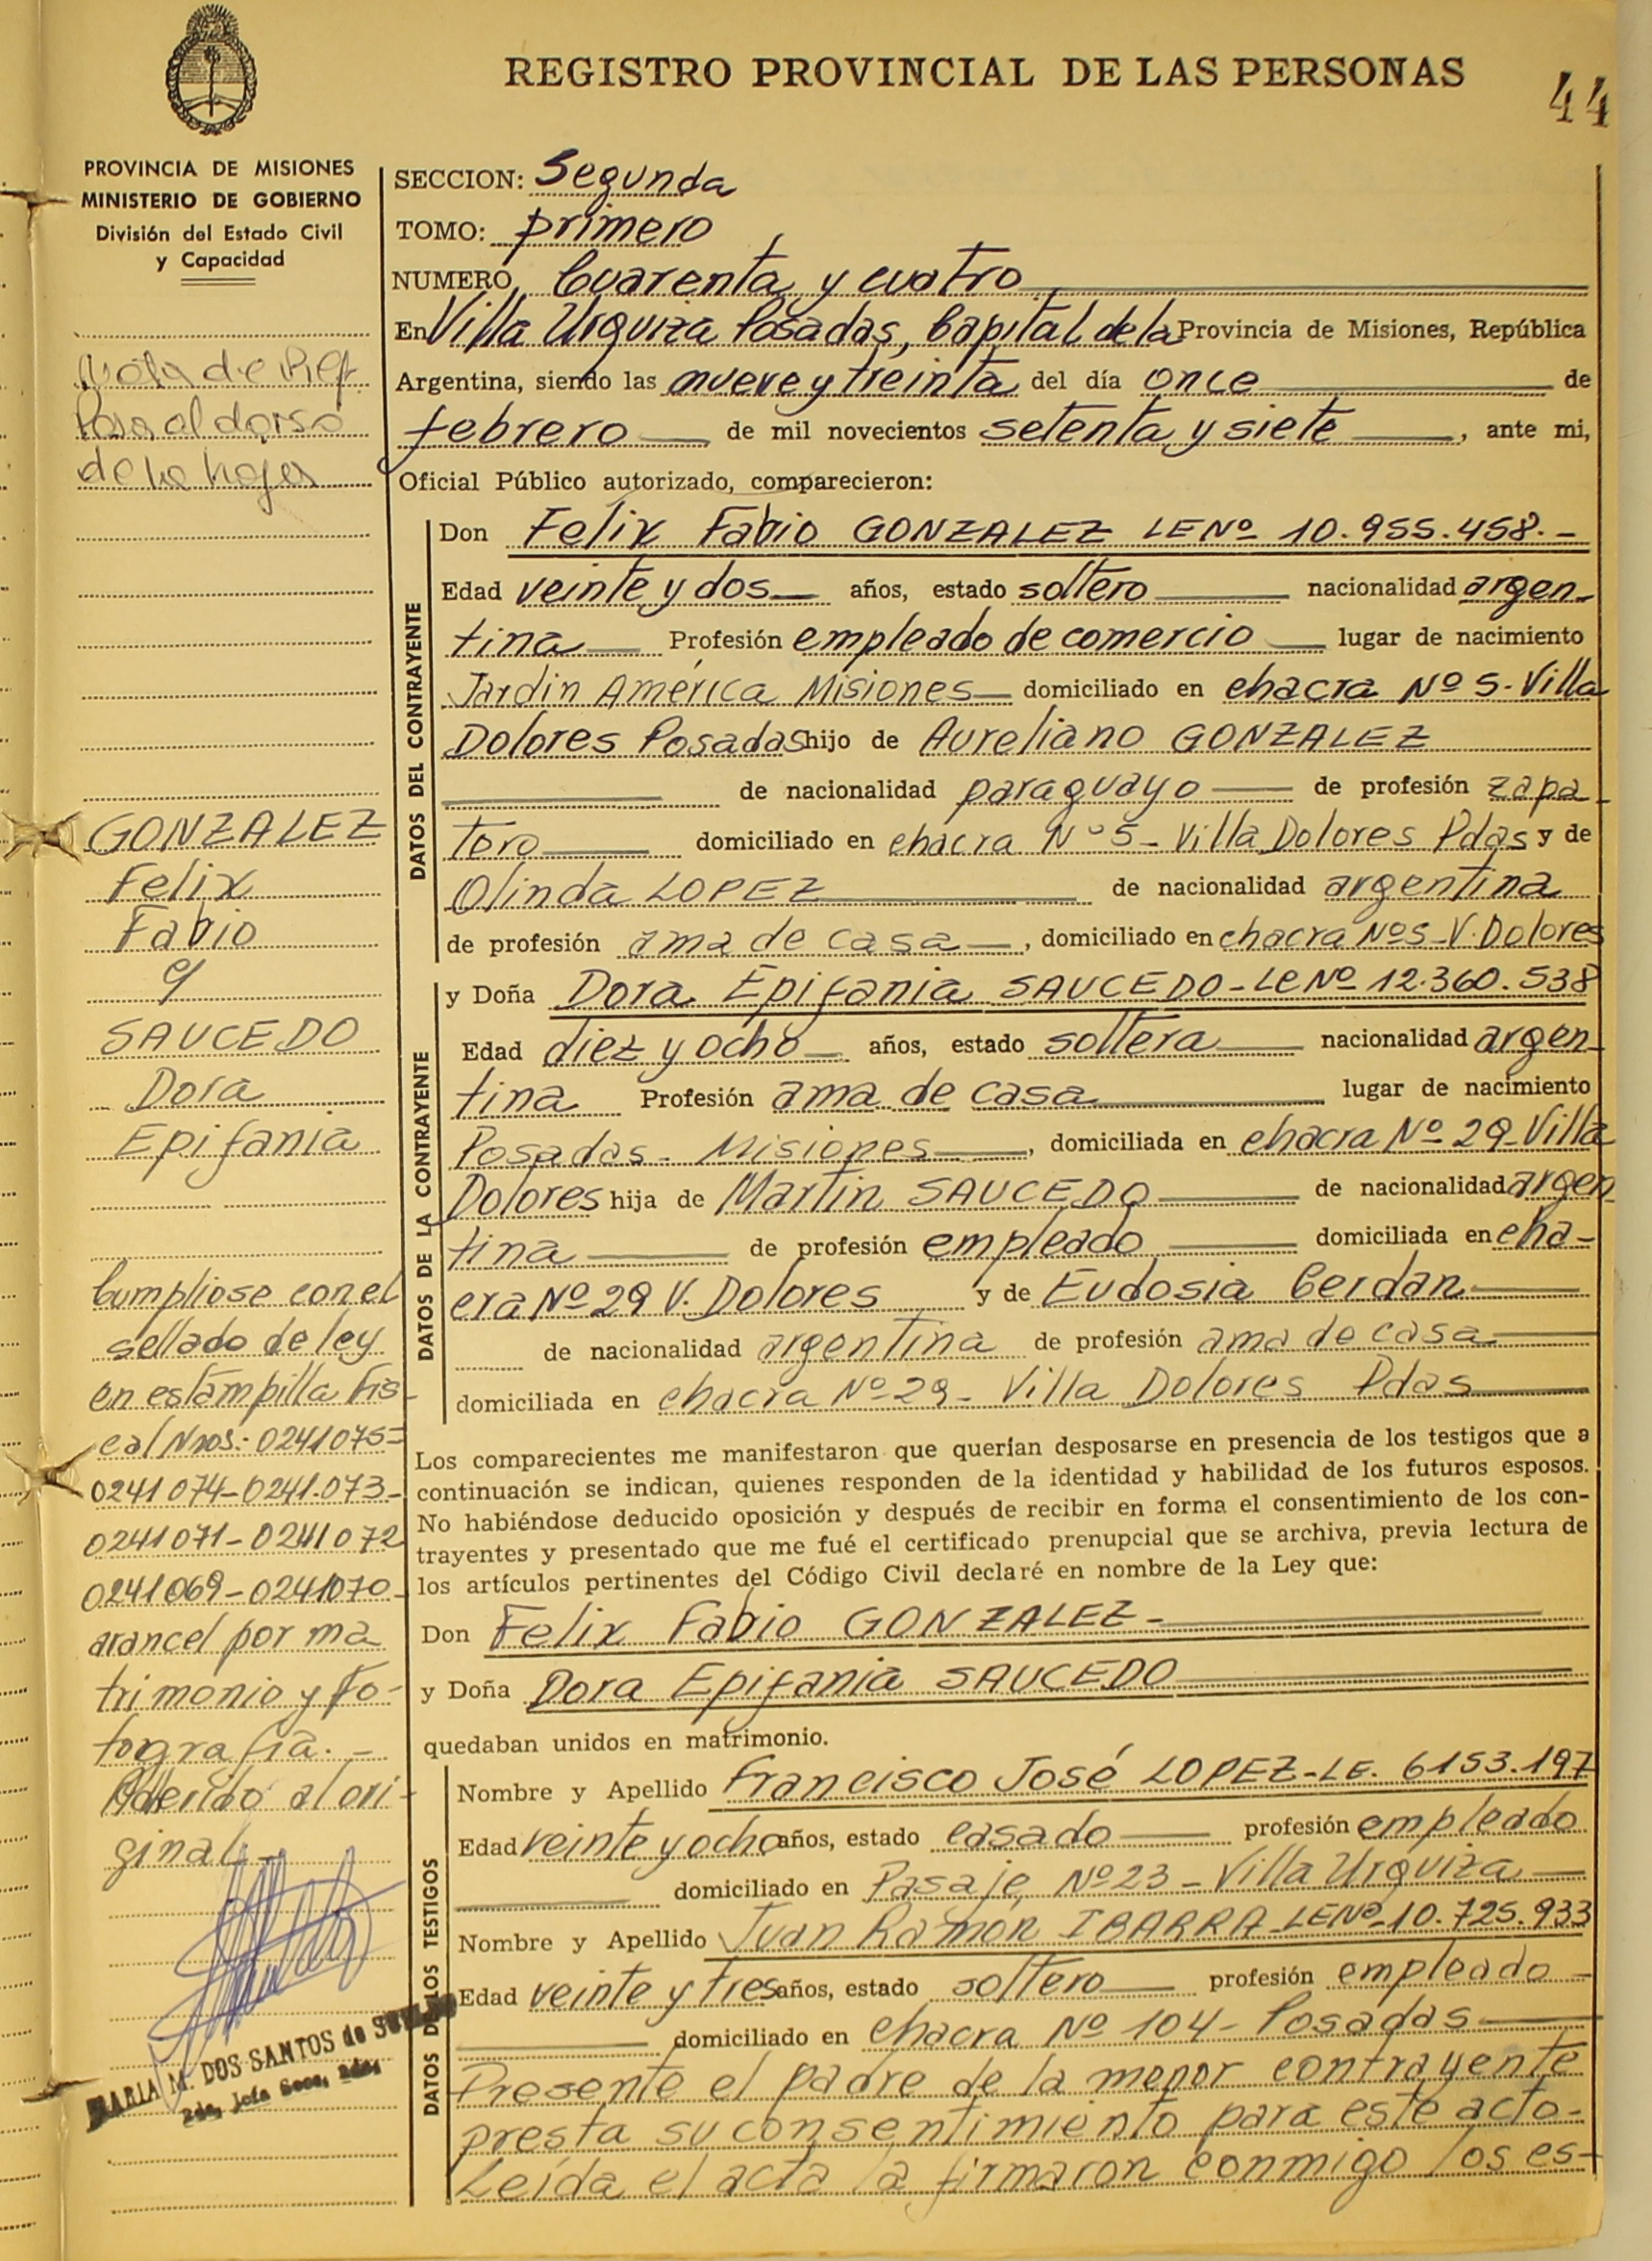 REGISTRO PROVINCIAL DE LAS PERSONAS
44
PROVINCIA DE MISIONES
MINISTERIO DE GOBIERNO
División del Estado Civil
y Capacidad
SECCION: Segunda
TOMO: primero
NUMERO Cuarenta y cuatro
En Villa Urquiza Posadas, Capital de la Provincia de Misiones, República
Argentina, siendo las nueve y treinta del día once de
febrero de mil novecientos setenta y siete, ante mi,
Oficial Público autorizado, comparecieron:
Nota de Ref
Pasa al dorso
de la hoja
DATOS DEL CONTRAYENTE
Don Felix Fabio GONZALEZ LE Nº 10.955.458.-
Edad veinte y dos años, estado soltero nacionalidad argen-
tina Profesión empleado de comercio lugar de nacimiento
Jardin América Misiones domiciliado en chacra Nº 5-Villa
Dolores Posadas hijo de Aureliano GONZALEZ
de nacionalidad paraguayo de profesión zapa-
tero domiciliado en chacra Nº 5- Villa Dolores Pdas y de
Olinda LOPEZ de nacionalidad argentina
de profesión ama de casa, domiciliado en chacra Nº5-V. Dolores
GONZALEZ
Felix
Fabio
y
SAUCEDO
Dora
Epifania
DATOS DE LA CONTRAYENTE
y Doña Dora Epifania SAUCEDO-LE Nº 12.360.538
Edad diez y ocho años, estado soltera nacionalidad argen-
tina Profesión ama de casa lugar de nacimiento
Posadas- Misiones, domiciliada en chacra Nº 29-Villa
Dolores hija de Martin SAUCEDO de nacionalidad argen
tina de profesión empleado domiciliada en cha-
cra Nº 29 V. Dolores y de Eudosia Cerdan
de nacionalidad argentina de profesión ama de casa
domiciliada en chacra Nº 29- Villa Dolores Pdas
Cumpliose con el
sellado de ley
en estampilla fis-
cal Nros: 0241075=
0241074-0241.073-
0241071-0241072
0241069-0241070-
arancel por ma
trimonio y fo-
tografia.-
Adherido al ori-
ginal.-
MARIA M. DOS SANTOS de
2da. Jefa Secc. 2da.
Los comparecientes me manifestaron que querían desposarse en presencia de los testigos que a
continuación se indican, quienes responden de la identidad y habilidad de los futuros esposos.
No habiéndose deducido oposición y después de recibir en forma el consentimiento de los con-
trayentes y presentado que me fué el certificado prenupcial que se archiva, previa lectura de
los artículos pertinentes del Código Civil declaré en nombre de la Ley que:
Don Felix Fabio GONZALEZ-
y Doña Dora Epifania SAUCEDO
quedaban unidos en matrimonio.
DATOS DE LOS TESTIGOS
Nombre y Apellido Francisco José LOPEZ-LE. 6153.197
Edad veinte y ocho años, estado casado profesión empleado
domiciliado en Pasaje Nº 23 - Villa Urquiza
Nombre y Apellido Juan Ramón IBARRA LE Nº 10.725.933
Edad veinte y tres años, estado soltero profesión empleado
domiciliado en chacra Nº 104- Posadas
Presente el padre de la menor contrayente
presta su consentimiento para este acto-
Leída el acta la firmaron conmigo los es-